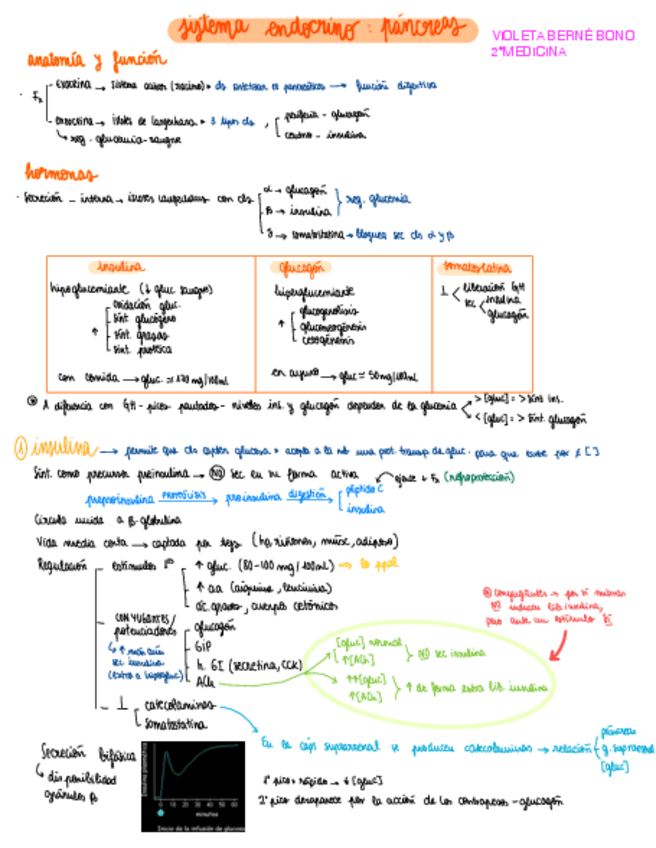 sistema endocrino: páncreas
VIOLETA BERNÉ BONO
2ºMEDICINA
anatomía y función
· Fx
exocrina → sistema acinos (racimo) → cls sintetizar es pancreáticos → función digestiva
endocrina → islotes de Langerhans → 3 tipos cls
periferia - glucagón
centro - insulina
↳ reg. glucemia - sangre
hormonas
· Secreción - interna → islotes con cls
α → glucagón
β → insulina
reg. glucemia
→ somatostatina → bloquea sec cls α y β
insulina
hipoglucemiante (↓ gluc sangre)
↑
oxidación gluc.
sínt. glucógeno
sínt. grasas
sínt. proteica
con comida → gluc. = 170 mg/100mL
glucagón
hiperglucemiante
↑
glucogenolisis
gluconeogénesis
cetogénesis
en ayuno → gluc = 50mg/100mL
somatostatina
⊥
liberación GH
sec
insulina
glucagón
A diferencia con GH - picos pautados - niveles ins. y glucagón dependen de la glucemia
> [gluc] = > sínt ins.
< [gluc] = > sínt. glucagón
① insulina → permite que cls capten glucosa → acopla a la mb una prot. transp de gluc. para que entre por ≠ [ ]
Sint. como precursor preinsulina → NO sec en su forma activa
ejerce + Fx (nefroprotección)
preproinsulina proteólisis → proinsulina digestión →
péptido C
insulina
Circula unida a β-globulina
Vida media corta → captada por tejs (hg, riñones, músc, adiposo)
Regulación
estímulos 1º
↑ gluc. (80-100 mg/100mL) → la ppal
↑ aa (arginina, leucina)
ác. grasos, cuerpos cetónicos
CONYUGANTES/
potenciadores
↳ ↑ más aún
sec insulina
glucagón
GIP
h. GI (secretina, CCK)
ACh
[gluc] normal
↑[ACh]
NO sec insulina
↑↑[gluc]
↑[ACh]
↑ de forma extra lib. insulina
conyugantes → por sí mismos
NO inducen lib. insulina,
pero ante un estímulo SÍ
⊥
catecolaminas
somatostatina
En la cáps suprarrenal se producen catecolaminas → relación
páncreas
g. suprarrenal
[gluc]
Secreción bifásica
↳ disponibilidad
gránulos β
Insulina plasmática
0 10 20 30 40 50 60
minutos
Inicio de la infusión de glucosa
1º pico → rápido → ↓ [gluc]
2º pico desaparece por la acción de los contrapesos - glucagón